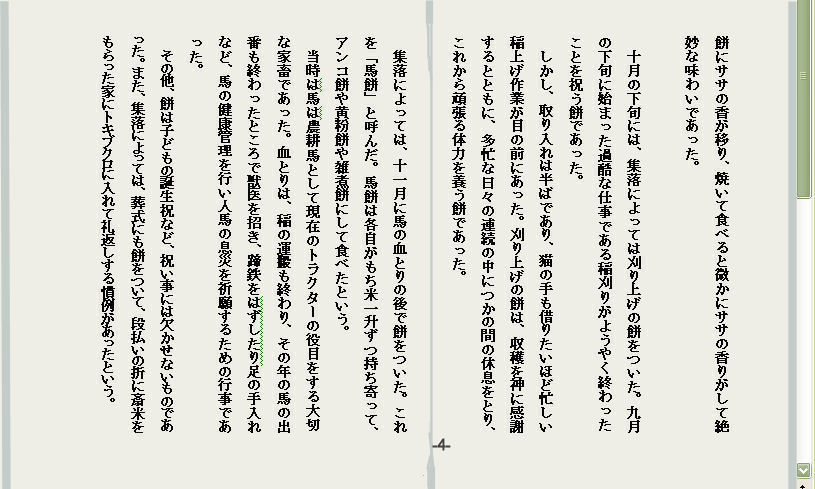 餅にササの香が移り、焼いて食べると微かにササの香りがして絶
妙な味わいであった。
十月の下旬には、集落によっては刈り上げの餅をついた。九月
の下旬に始まった過酷な仕事である稲刈りがようやく終わった
ことを祝う餅であった。
しかし、取り入れは半ばであり、猫の手も借りたいほど忙しい
稲上げ作業が目の前にあった。刈り上げの餅は、収穫を神に感謝
するとともに、多忙な日々の連続の中につかの間の休息をとり、
これから頑張る体力を養う餅であった。
集落によっては、十一月に馬の血とりの後で餅をついた。これ
を「馬餅」と呼んだ。馬餅は各自がもち米一升ずつ持ち寄って、
アンコ餅や黄粉餅や雑煮餅にして食べたという。
当時は馬は農耕馬として現在のトラクターの役目をする大切
な家畜であった。血とりは、稲の運搬も終わり、その年の馬の出
番も終わったところで獣医を招き、蹄鉄をはずしたり足の手入れ
など、馬の健康管理を行い人馬の息災を祈願するための行事であ
った。
その他、餅は子どもの誕生祝など、祝い事には欠かせないものであ
った。また、集落によっては、葬式にも餅をついて、段払いの折に斎米を
もらった家にトキブクロに入れて礼返しする慣例があったという。
-4-